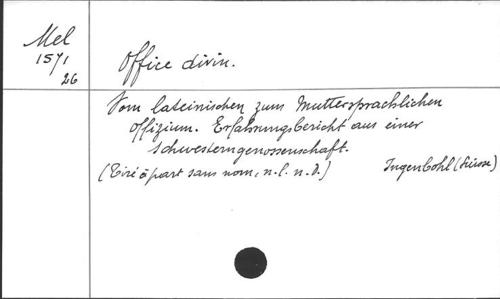 Mel
1571
26
Office divin.
Vom lateinischen zum Muttersprachlichen
Offizium. Erfahrungsbericht aus einer
Schwesterngenossenschaft.
(Tiré à part sans nom, n.l. n.d.) Ingenbohl (Suisse)